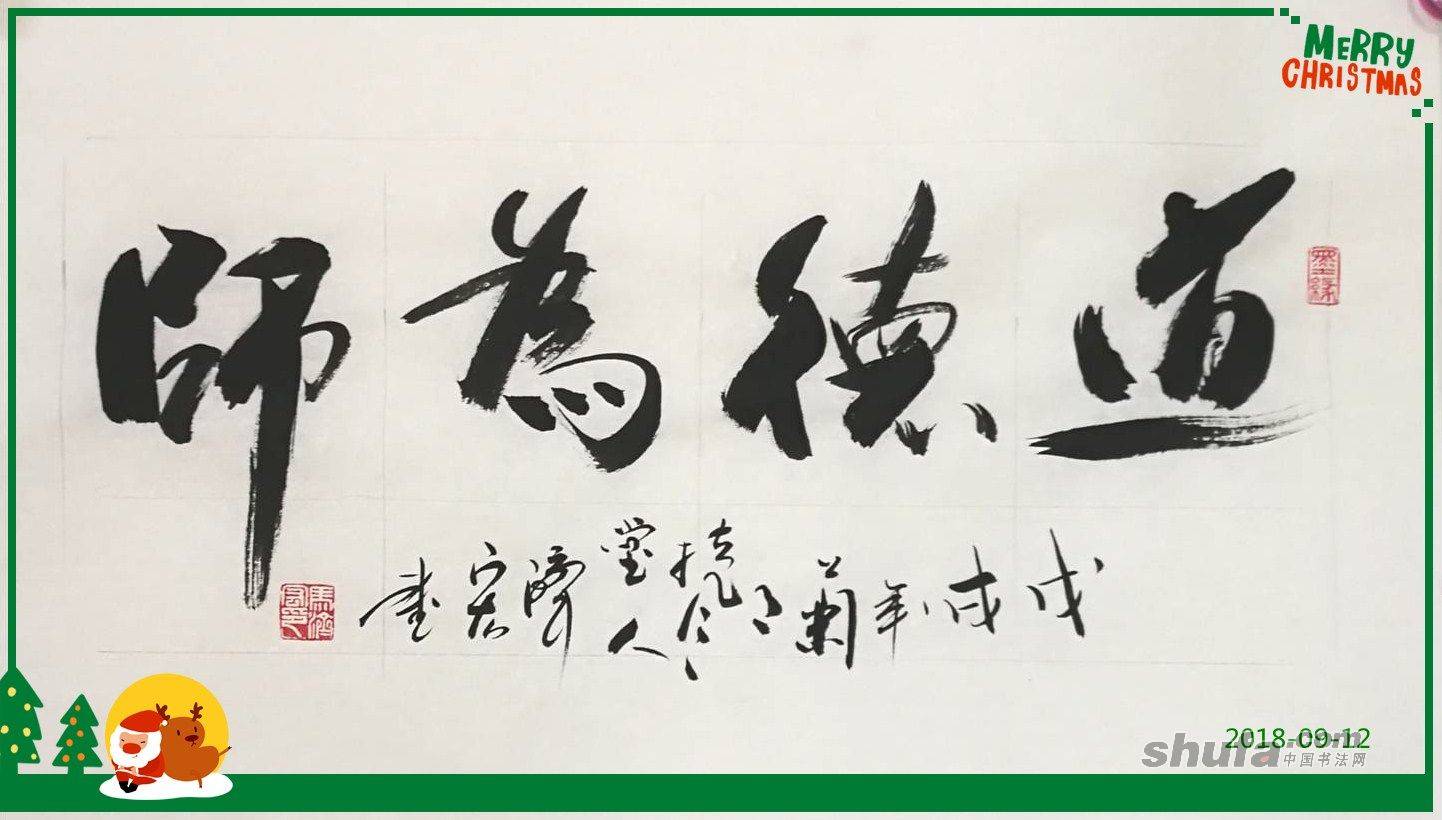 MERRY
CHRISTMAS
道德為師
墨緣
戊戌年蘭月堂人濟宏書
2018-09-12
shufa.com
中国书法网